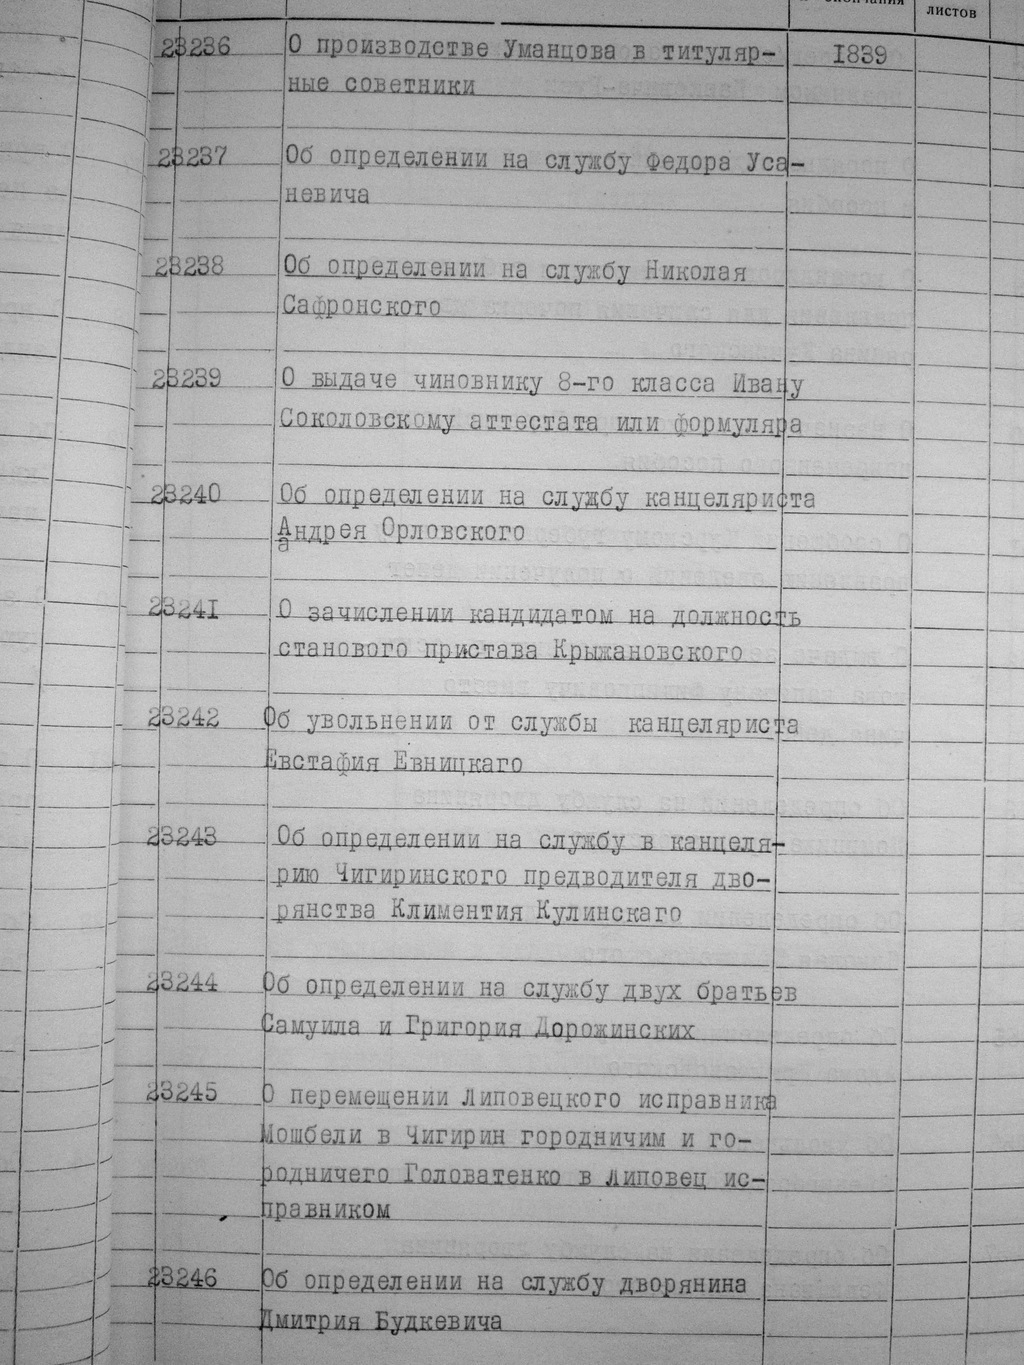 окончания
листов
23236 О производстве Уманцова в титуляр- 1839
ные советники
23237 Об определении на службу Федора Уса-
невича
23238 Об определении на службу Николая
Сафронского
23239 О выдаче чиновнику 8-го класса Ивану
Соколовскому аттестата или формуляра
23240 Об определении на службу канцеляриста
Андрея Орловского
а
23241 О зачислении кандидатом на должность
станового пристава Крыжановского
23242 Об увольнении от службы канцеляриста
Евстафия Евницкаго
23243 Об определении на службу в канцеля-
рию Чигиринского предводителя дво-
рянства Климентия Кулинскаго
23244 Об определении на службу двух братьев
Самуила и Григория Дорожинских
23245 О перемещении Липовецкого исправника
Мошбели в Чигирин городничим и го-
родничего Головатенко в Липовец ис-
правником
23246 Об определении на службу дворянина
Дмитрия Будкевича